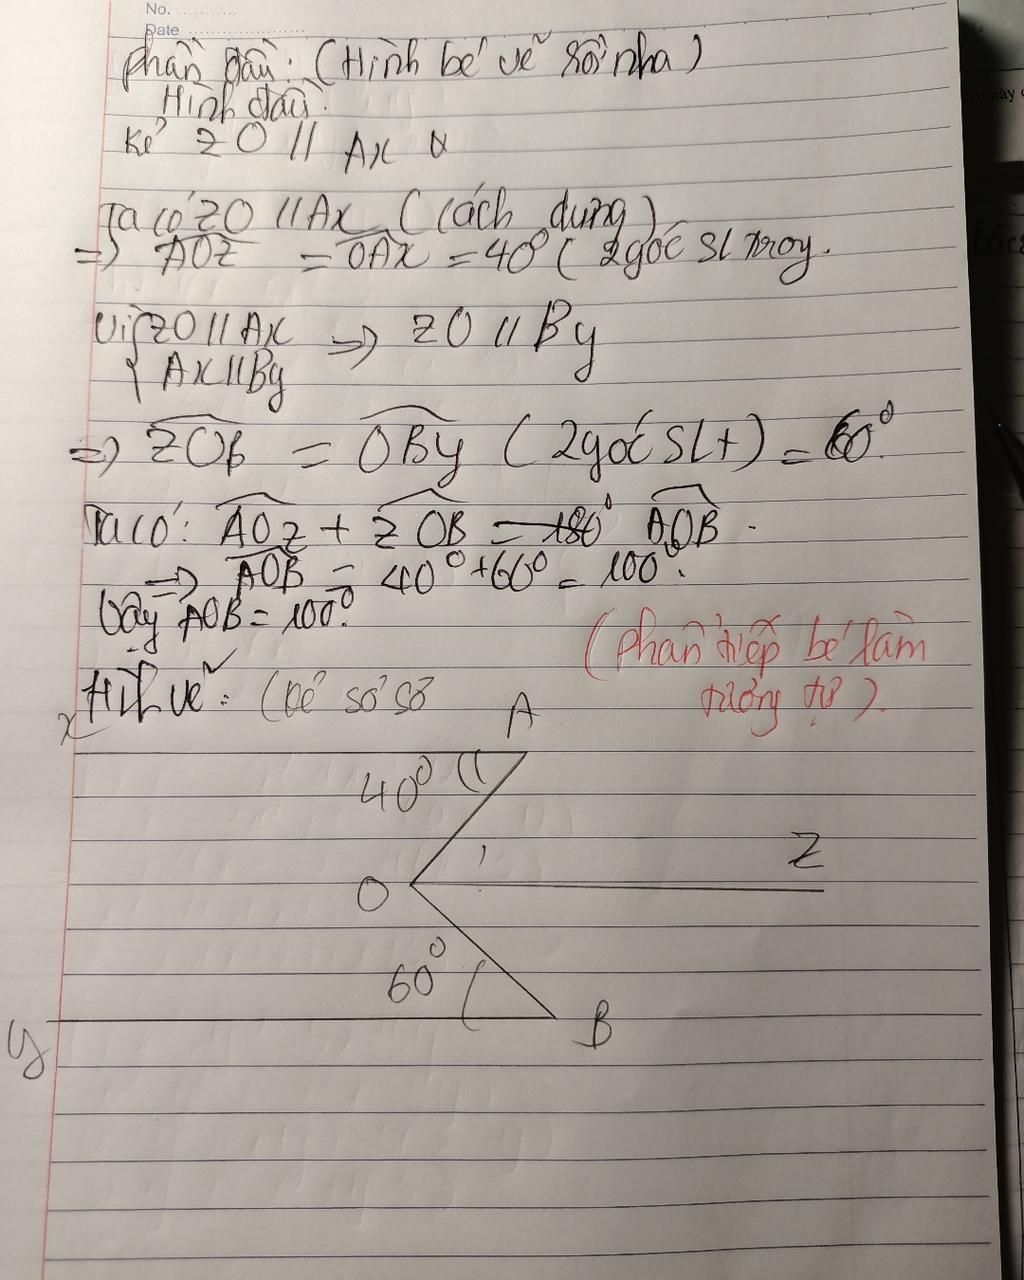 No. ............
Date ............
phần đầu: (Hình bé vẽ rồi nha)
Hình đầu:
kẻ ZO // Ax
Ta có ZO // Ax (cách dựng)
=> AOZ = OAx = 40° ( 2 góc SL trog.
Vì { ZO // Ax => ZO // By
Ax // By
=> ZOB = OBy ( 2 góc SLt) = 60°.
Ta có: AOZ + ZOB = 180° AOB.
=> AOB = 40° + 60° = 100°.
Vậy AOB = 100°.
(phần tiếp bé làm
tương tự).
Hình vẽ: (kẻ sơ sơ
x
A
40°
Z
O
60°
y
B